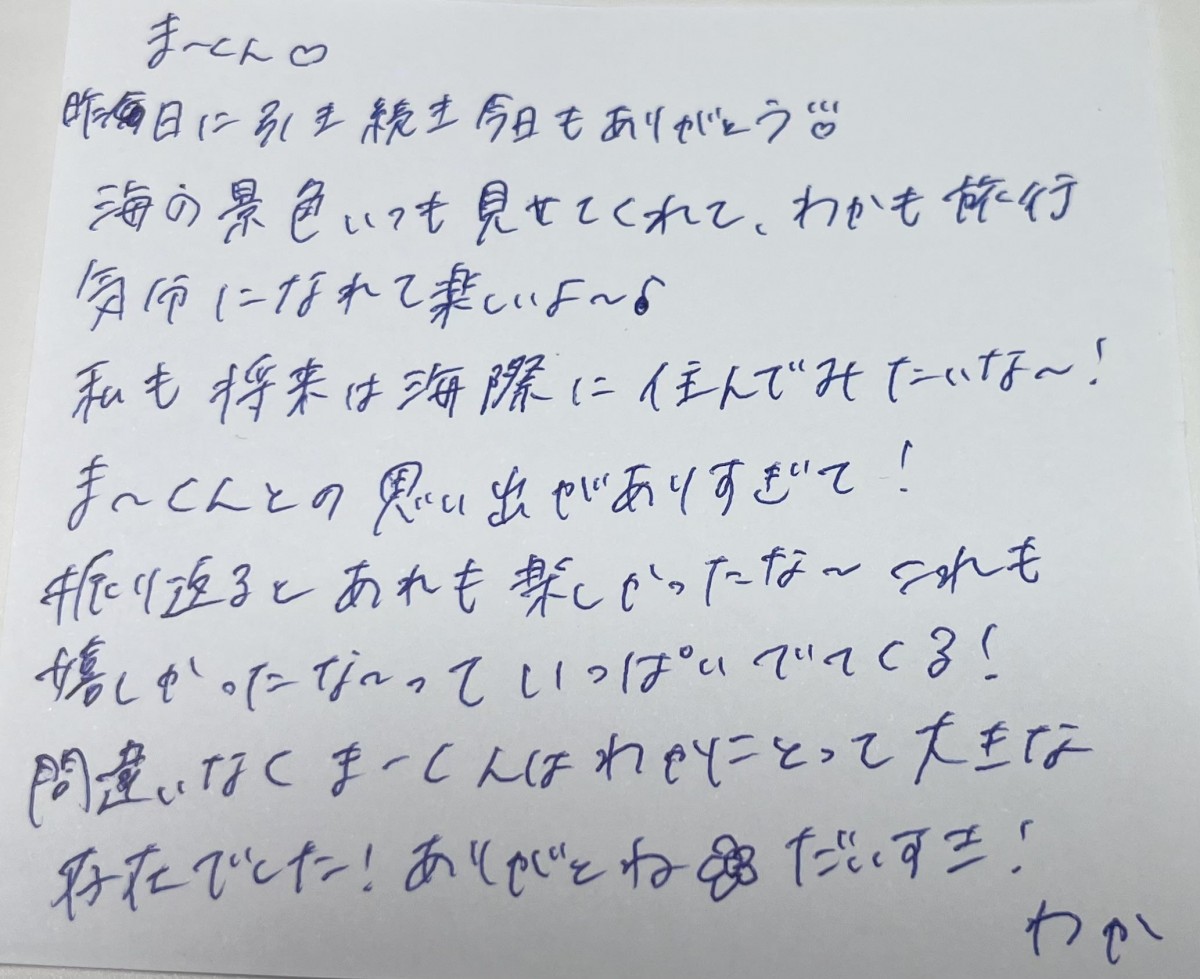 ま〜くん♡
昨日に引き続き今日もありがとう
海の景色いつも見せてくれて、わかも旅行
気分になれて楽しいよ〜♪
私も将来は海際に住んでみたいな〜!
ま〜くんとの思い出がありすぎて!
振り返るとあれも楽しかったな〜これも
嬉しかったな〜っていっぱいでてくる!
間違いなくまーくんはわかにとって大きな
存在でした!ありがとね だいすき!
わか